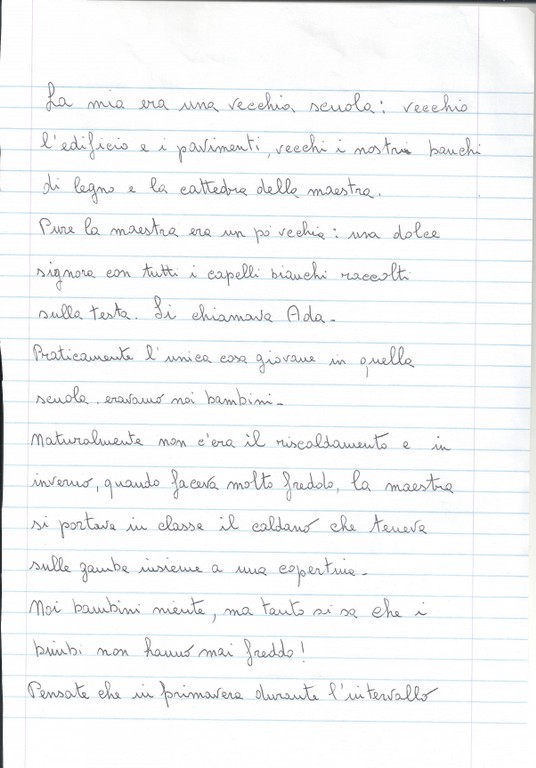 La mia era una vecchia scuola: vecchio
l'edificio e i pavimenti, vecchi i nostri banchi
di legno e la cattedra della maestra.
Pure la maestra era un pò vecchia: una dolce
signora con tutti i capelli bianchi raccolti
sulla testa. Si chiamava Ada.
Praticamente l'unica cosa giovane in quella
scuola eravamo noi bambini.
Naturalmente non c'era il riscaldamento e in
inverno, quando faceva molto freddo, la maestra
si portava in classe il caldano che teneva
sulle gambe insieme a una copertina.
Noi bambini niente, ma tanto si sa che i
bimbi non hanno mai freddo!
Pensate che in primavera durante l'intervallo